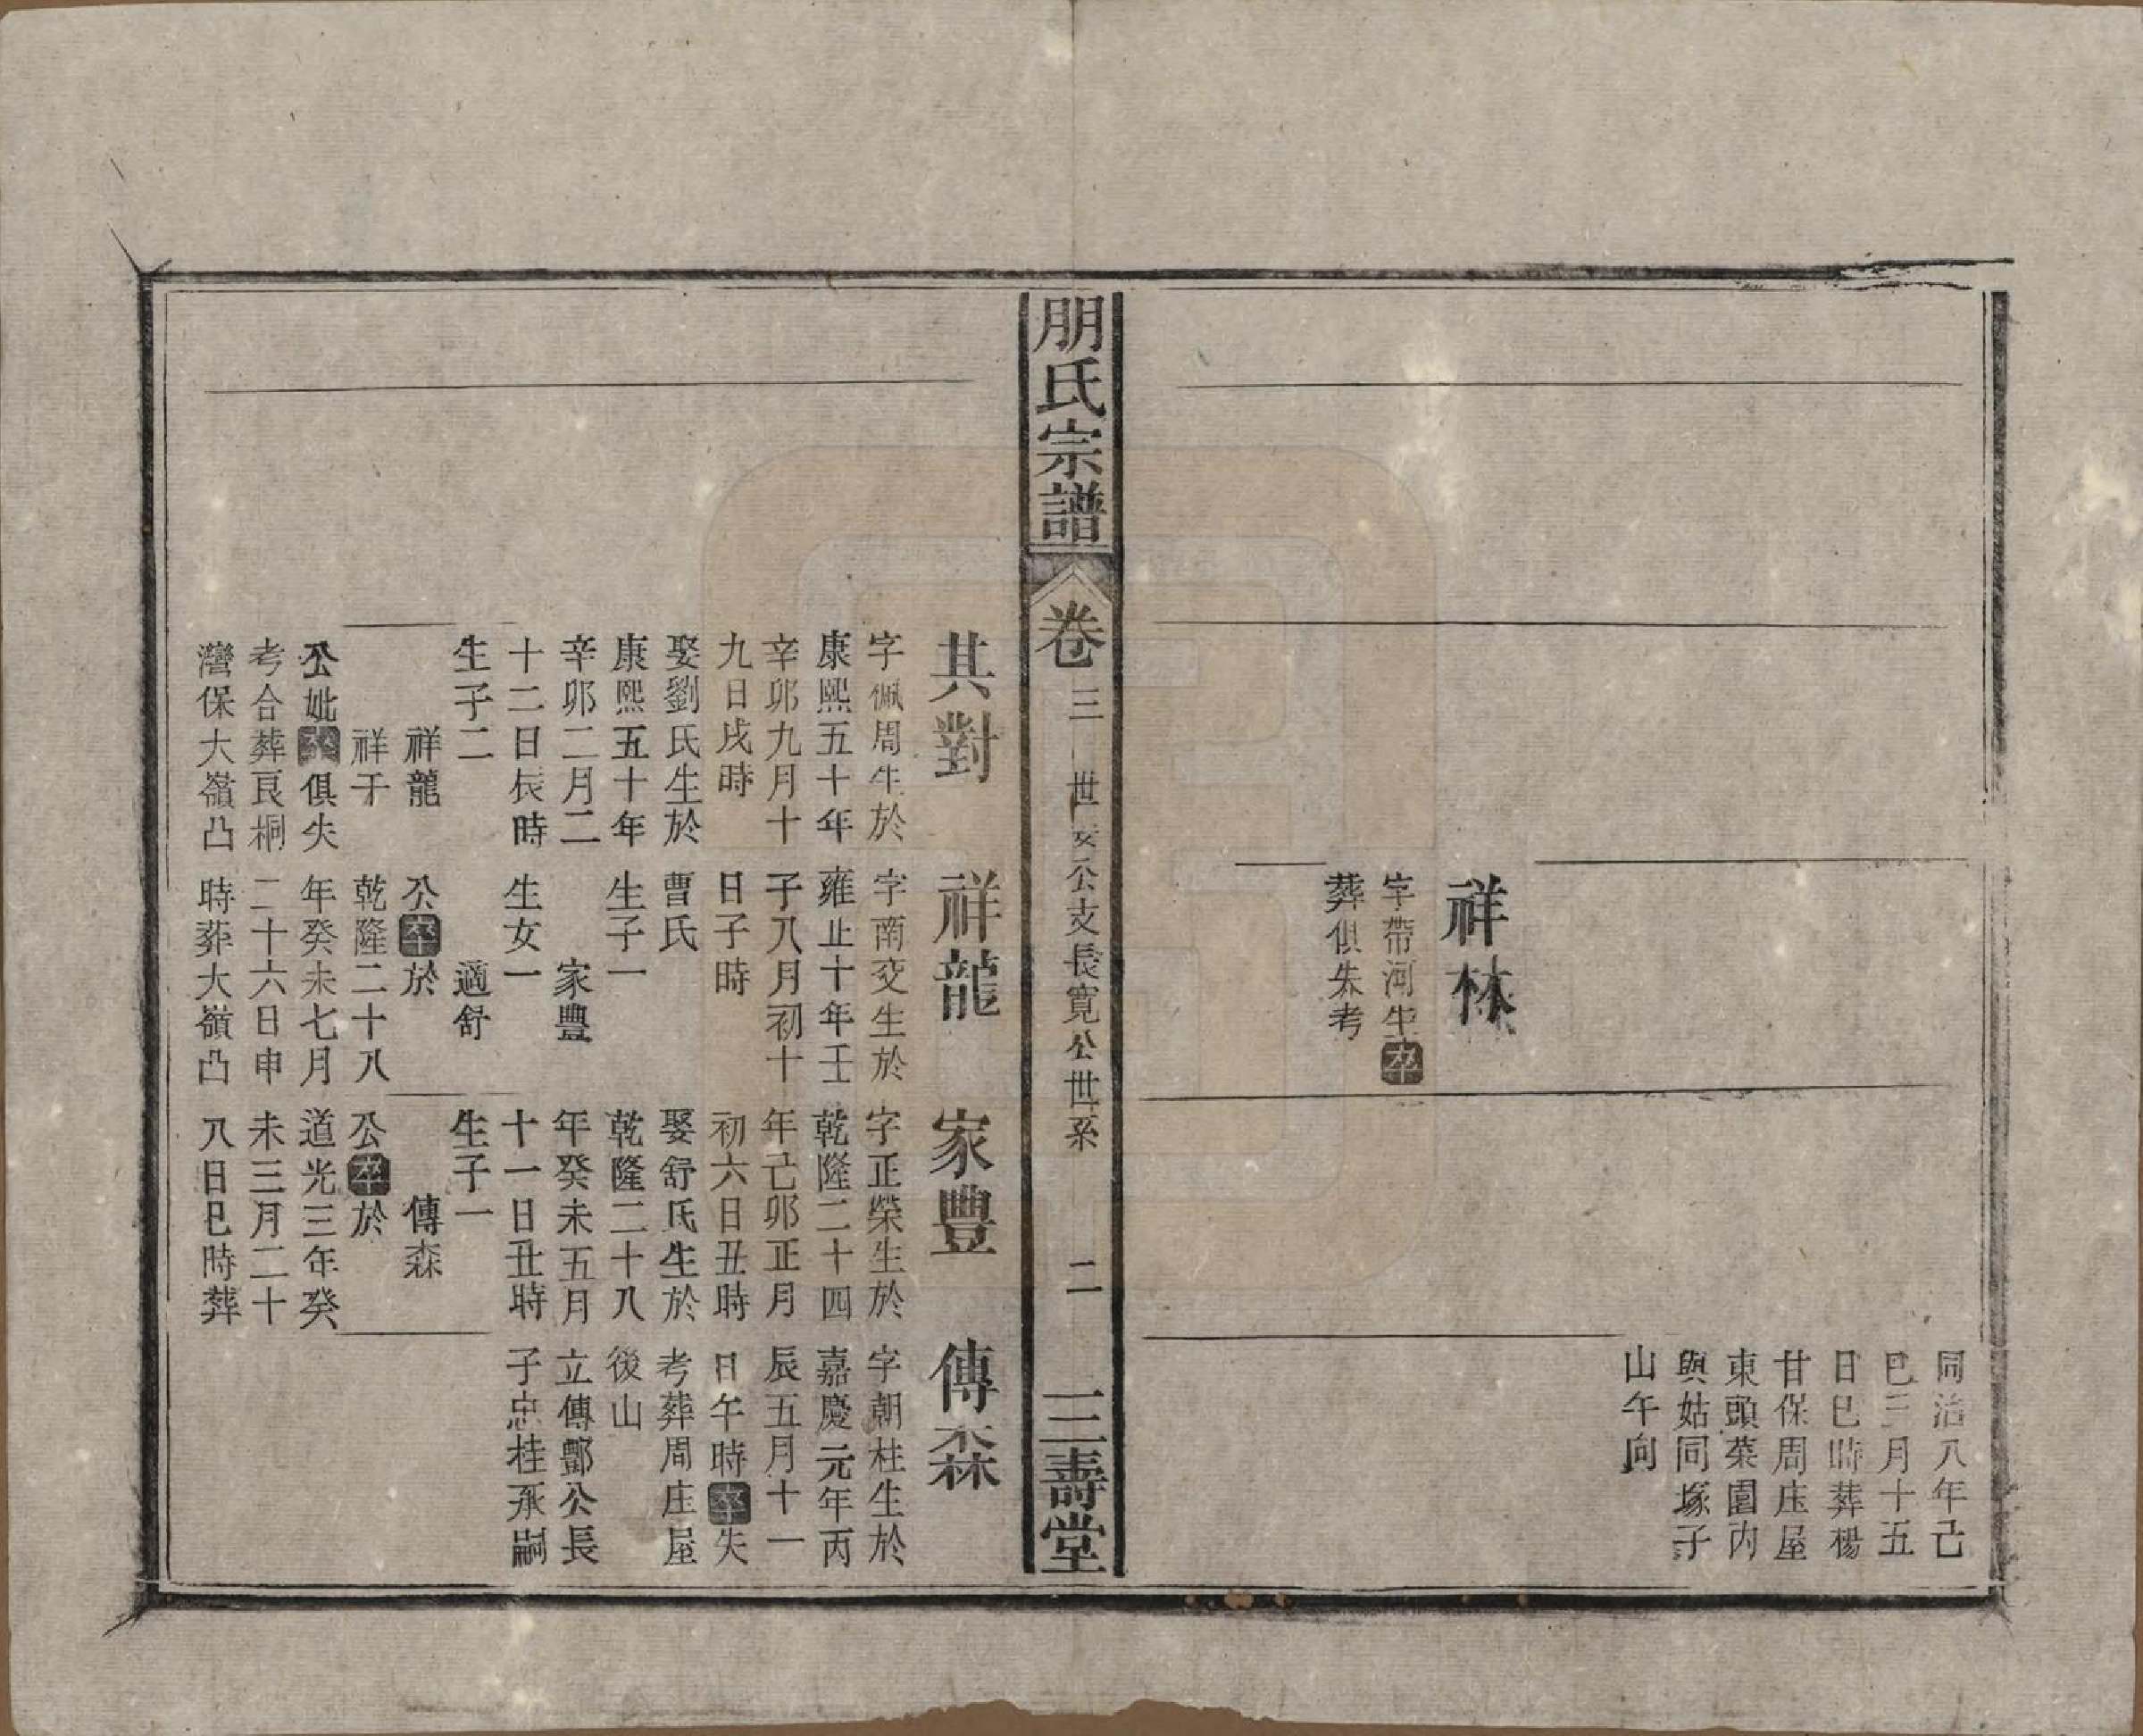 祥林
字帶河生卒
葬俱失考
同治八年己
巳三月十五
日巳時葬楊
甘保周庄屋
東頭菜園內
與姑同塚子
山午向
朋氏宗譜
卷三
世安公支長寬公世系
二
三壽堂
其對
字佩周生於
康熙五十年
辛卯九月十
九日戌時
娶劉氏生於
康熙五十年
辛卯二月二
十二日辰時
生子二
祥龍
祥于
公妣卒俱失
考合葬艮桐
灣保大嶺凸
祥龍
字南交生於
雍正十年壬
子八月初十
日子時
曹氏
生子一
家豐
生女一
適舒
公卒於
乾隆二十八
年癸未七月
二十六日申
時葬大嶺凸
家豐
字正榮生於
乾隆二十四
年己卯正月
初六日丑時
娶舒氏生於
乾隆二十八
年癸未五月
十一日丑時
生子一
傳森
公卒於
道光三年癸
未三月二十
八日巳時葬
傳森
字朝柱生於
嘉慶元年丙
辰五月十一
日午時卒失
考葬周庄屋
後山
立傳酆公長
子忠桂承嗣